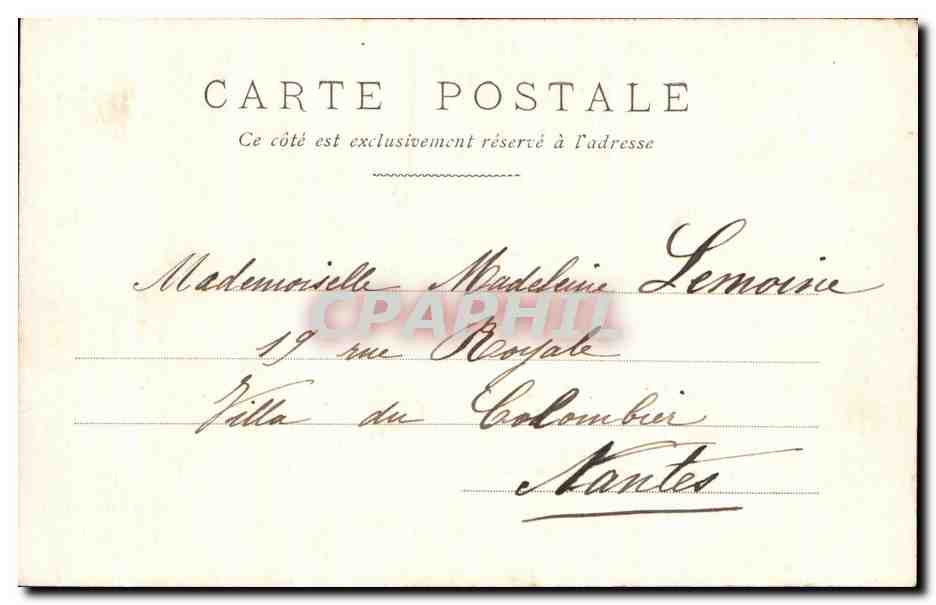 CARTE POSTALE
Ce côté est exclusivement réservé à l'adresse
Mademoiselle Madeleine Lemoine
CPAPHIL
19 rue Royale
Villa du Colombier
Nantes